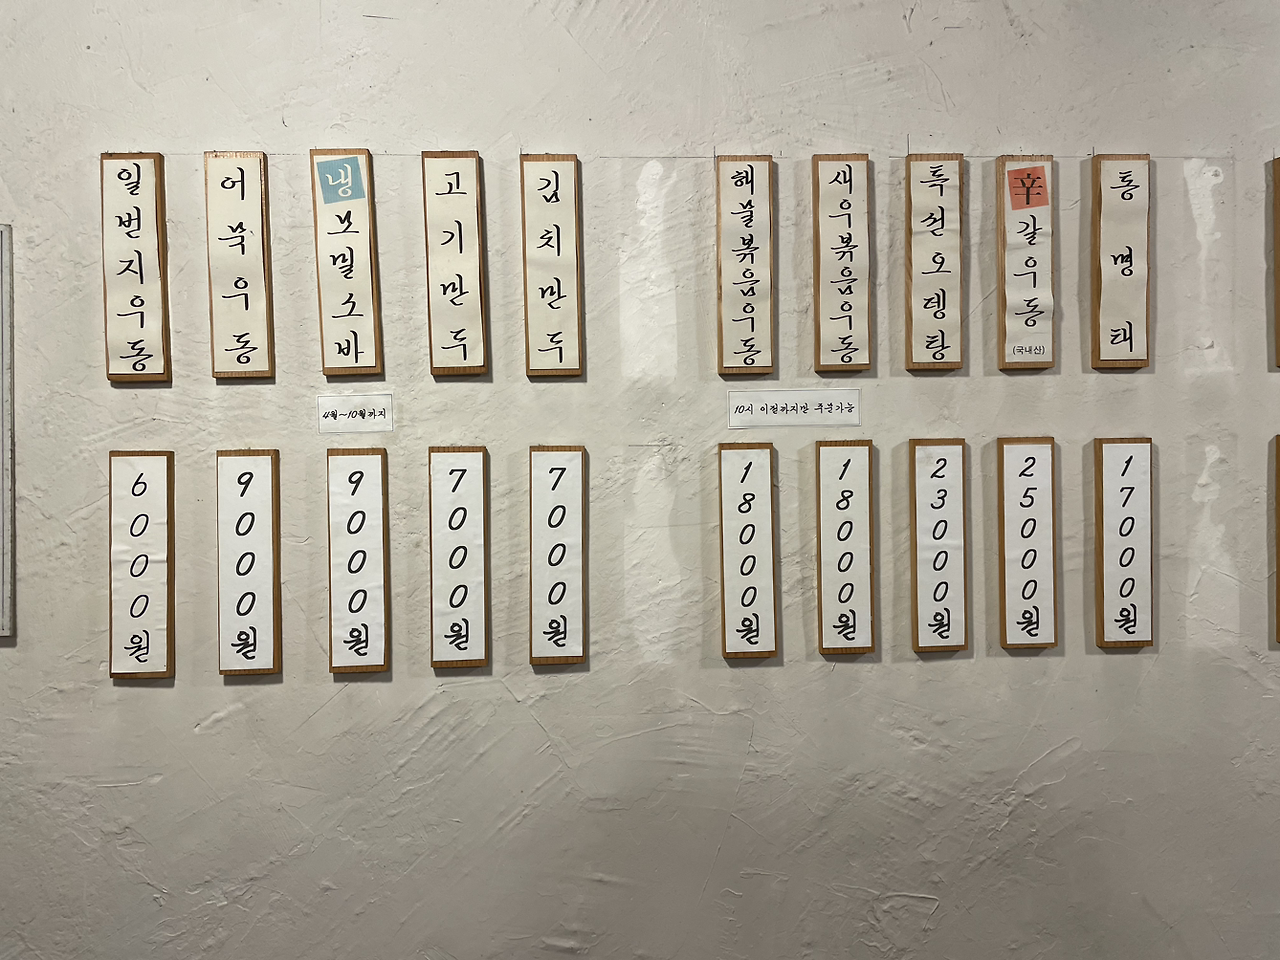 일번지우동
어묵우동
냉모밀소바
고기만두
김치만두
해물볶음우동
새우볶음우동
특썰오뎅탕
辛갈우동
(국내산)
통명태
4월~10월까지
10시 이전까지만 주문가능
6000원
9000원
9000원
7000원
7000원
18000원
18000원
23000원
25000원
17000원